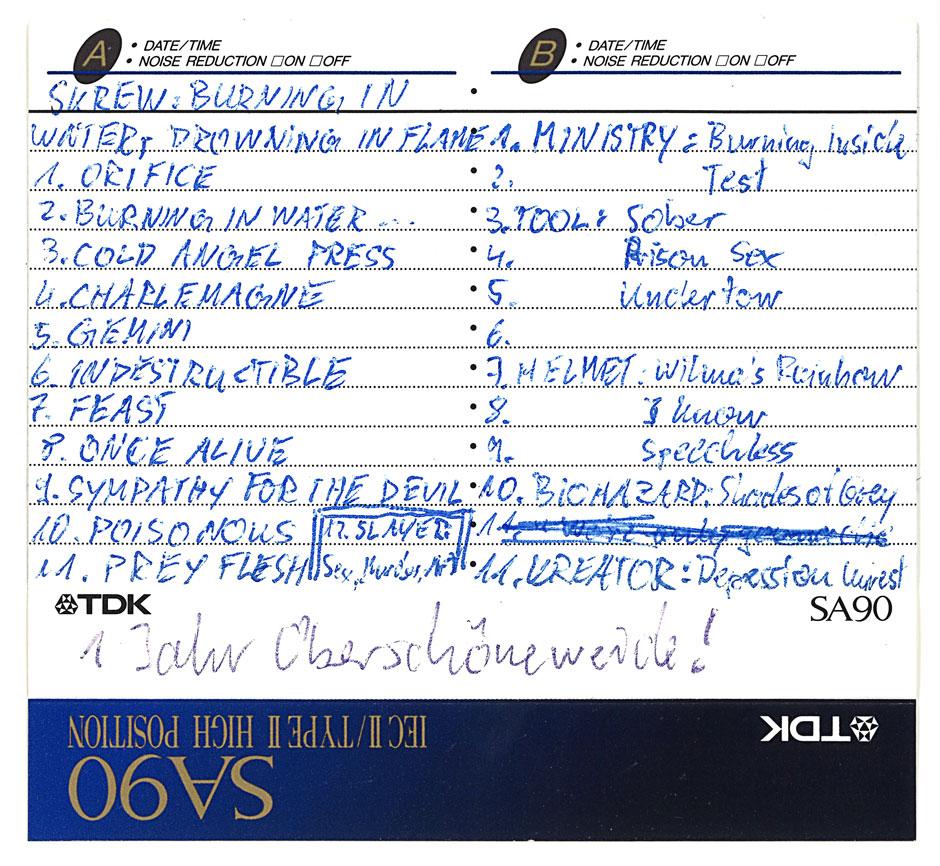 A • DATE/TIME
• NOISE REDUCTION □ON □OFF
SKREW: BURNING IN
WATER, DROWNING IN FLAME
1. ORIFICE
2. BURNING IN WATER ...
3. COLD ANGEL PRESS
4. CHARLEMAGNE
5. GEMINI
6. INDESTRUCTIBLE
7. FEAST
8. ONCE ALIVE
9. SYMPATHY FOR THE DEVIL
10. POISONOUS
11. PREY FLESH
12. SLAYER:
Sex, Murder, Art
B • DATE/TIME
• NOISE REDUCTION □ON □OFF
1. MINISTRY: Burning Inside
2. Test
3. TOOL: Sober
4. Prison Sex
5. Undertow
6.
7. HELMET: Wilma's Rainbow
8. I Know
9. Speechless
10. BIOHAZARD: Shades of Grey
11.
11. KREATOR: Depression Unrest
TDK SA90
1 Jahr Oberschöneweide!
TDK
IEC II/TYPE II HIGH POSITION
SA90